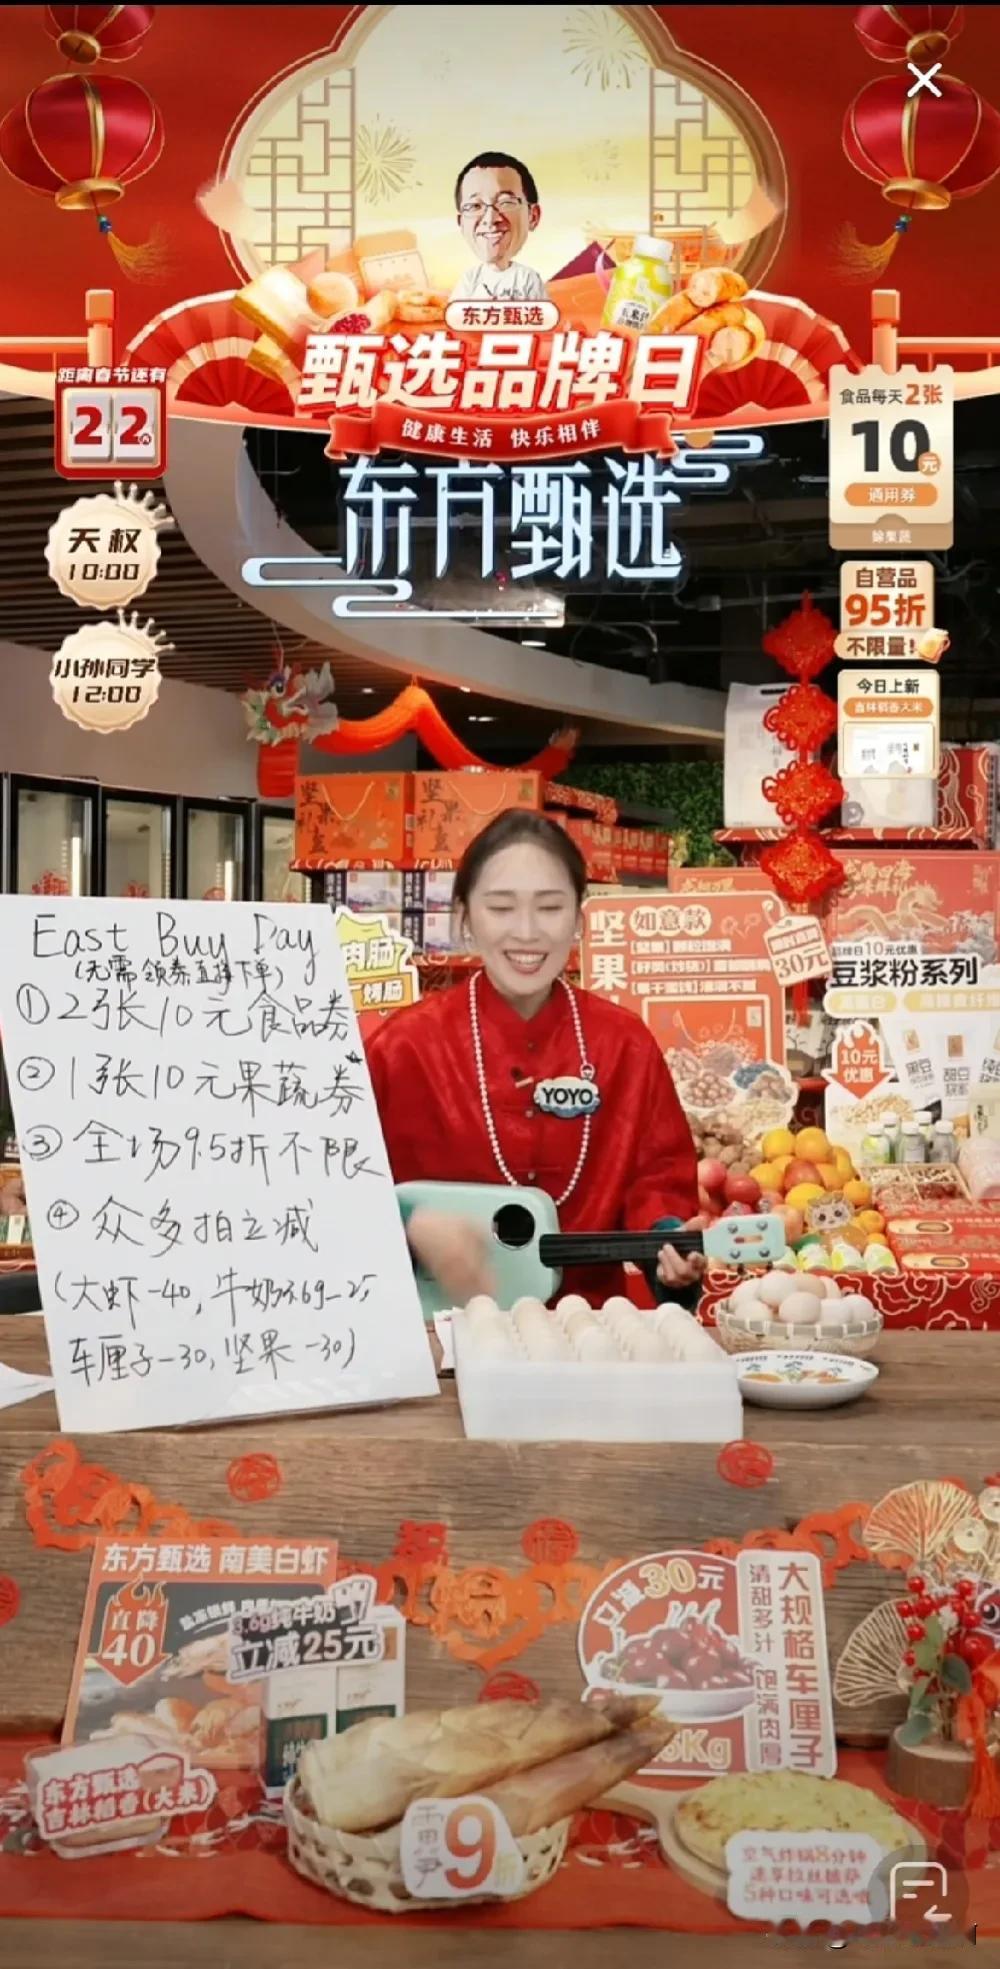 东方甄选
甄选品牌日
健康生活 快乐相伴
距离春节还有
22天
天权
10:00
小孙同学
12:00
食品每天2张
10元
通用券
除果蔬
自营品
95折
不限量!
今日上新
吉林稻香大米
东方甄选
East Buy Day
(无需领券直接下单)
①2张10元食品券
②1张10元果蔬券
③全场9.5折不限
④众多拍立减
(大虾-40,牛奶3.6g-25
车厘子-30,坚果-30)
肉肠
烤肠
坚果
如意款
30元
YOYO
品牌日10元优惠
豆浆粉系列
10元
优惠
东方甄选 南美白虾
直降
40
3.6g纯牛奶
立减25元
立减30元
大规格车厘子
清甜多汁 饱满肉厚
Kg
东方甄选
吉林稻香(大米)
雷笋9折
空气炸锅8分钟
速享拉丝披萨
5种口味可选哦